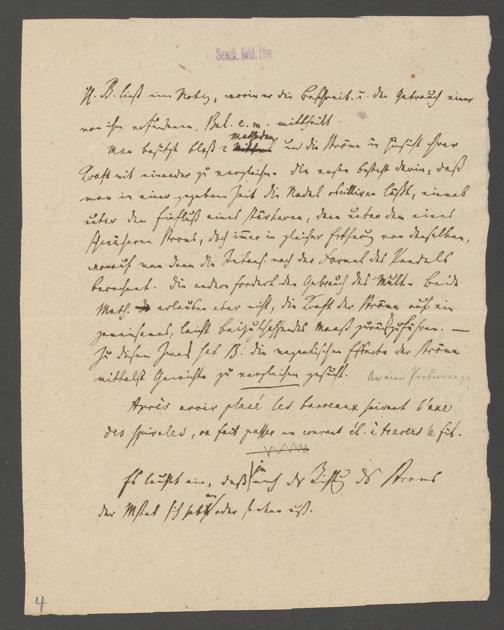 Senck. Bibl. Ffm.
H. B. ließt eine Notiz, worin er die Beschreib. u. den Gebrauch einer
von ihm erfundenen Bal. e. m. mittheilt.
Methoden
Man besitzt bloß 2 um die Ströme in Hinsicht ihrer
Kraft mit einander zu vergleichen. Die erste besteht darin, daß
man in einer gegebenen Zeit die Nadel oscilliren läßt, einmal
unter dem Einfluß eines stärkeren, dann unter dem eines
schwächeren Stroms, doch immer in gleicher Entfernung von denselben,
worauf man dann die Intens. nach der Formel des Pendels
berechnet. Die andere fordert den Gebrauch des Mult. Beide
Meth. erlauben aber nicht, die Kraft der Ströme auf ein
gemeinsames, leicht Maaß zurückzuführen. —
Zu diesem Zweck hat B. die magnetischen Effecte der Ströme
mittelst Gewichte zu vergleichen gesucht.
Après avoir placé les barreaux suivant l'axe
des spirales, on fait passer un courant él. à travers le fil.
Es leuchtet ein, daß je nach der Richtg des Stroms
der sich oder muß.
4